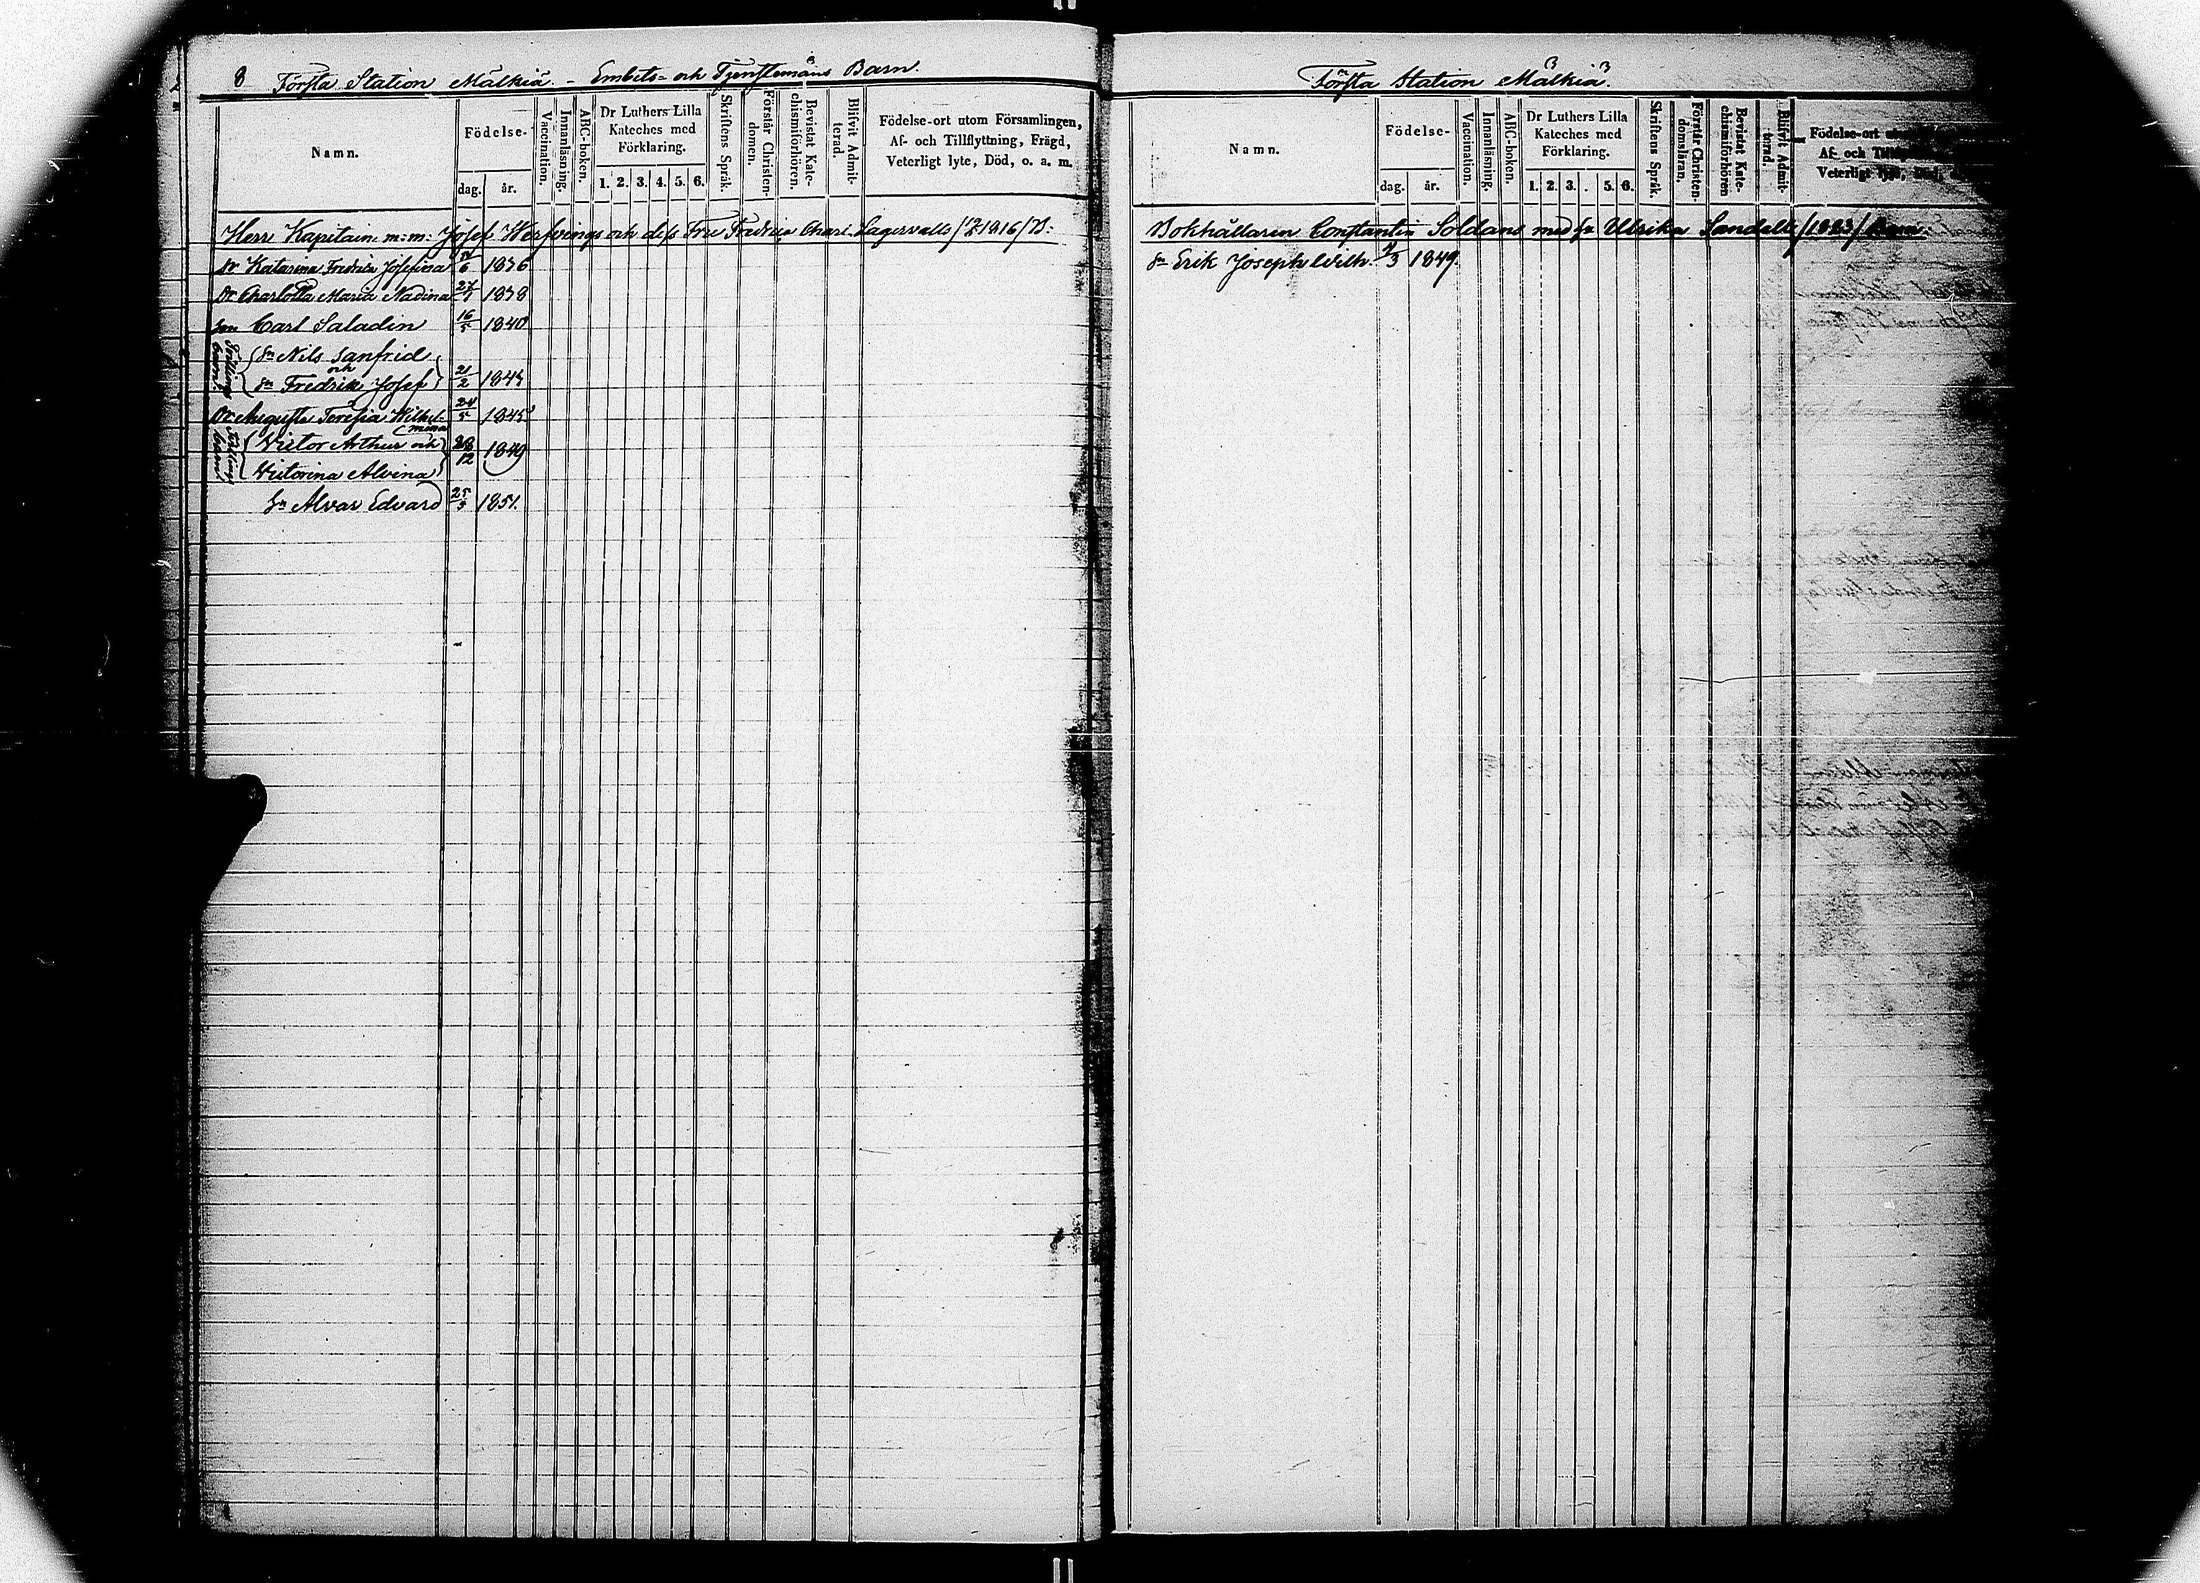 8 Första Station Mälkiä. - Embets- och Tjenstemäns Barn.
Namn.
Födelse-
dag. år.
Vaccination.
Innanläsning.
ABC-boken.
Dr Luthers Lilla Kateches med Förklaring.
1. 2. 3. 4. 5. 6.
Skriftens Språk.
Förstår Christendomen.
Bevistat Katechismiförhören.
Blifvit Admitterad.
Födelse-ort utom Församlingen,
Af- och Tillflyttning, Frägd,
Veterligt lyte, Död, o. a. m.
Herr Kapitain m: m: Josef och dess Fru Fredrica Charl. Lagervalls /1816/ B:
Dr Katarina Fredrika Josefina 6 1836
Dr Charlotta Maria Nadina 27 1838
Son Carl Saladin 16/5 1840
Tvilling barn
Sn Nils Sanfrid
och
Sn Fredrik Josef 21/2 1843
Dr Augusta Teresia Wilhel- 24/5 1845
mina
Tvilling barn
Victor Arthur och 28/12 1849
Victorina Alvina
Sn Alvar Edvard 25/5 1851.
Första Station Mälkiä.
Namn.
Födelse-
dag. år.
Vaccination.
Innanläsning.
ABC-boken.
Dr Luthers Lilla Kateches med Förklaring.
1. 2. 3. . 5. 6.
Skriftens Språk.
Förstår Christendomsläran.
Bevistat Katechismiförhören
Blifvit Admitterad.
Födelse-ort
Af- och
Veterligt lyte,
Bokhållaren Constantin Soldans med fr Ulrika Sandells /1823/ Barn
Sn Erik Joseph Wilh. /3 1849